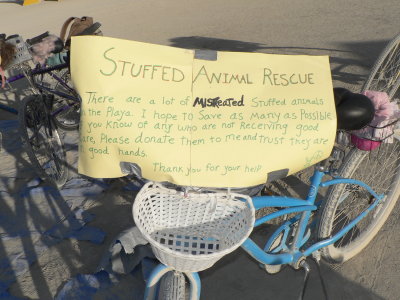 STUFFED ANIMAL RESCUE
There are a lot of MISTREATED Stuffed animals
the Playa. I hope To Save as Many as Possible
you know of any who are not Receiving good
are, Please donate Them to me and trust they are
good hands.
Thank you for your help